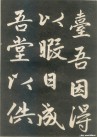 臺吾因得
以暇日咸
吾堂以供